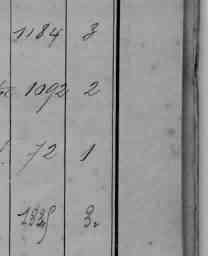 1184 3
1092 2
72 1
1335 3.